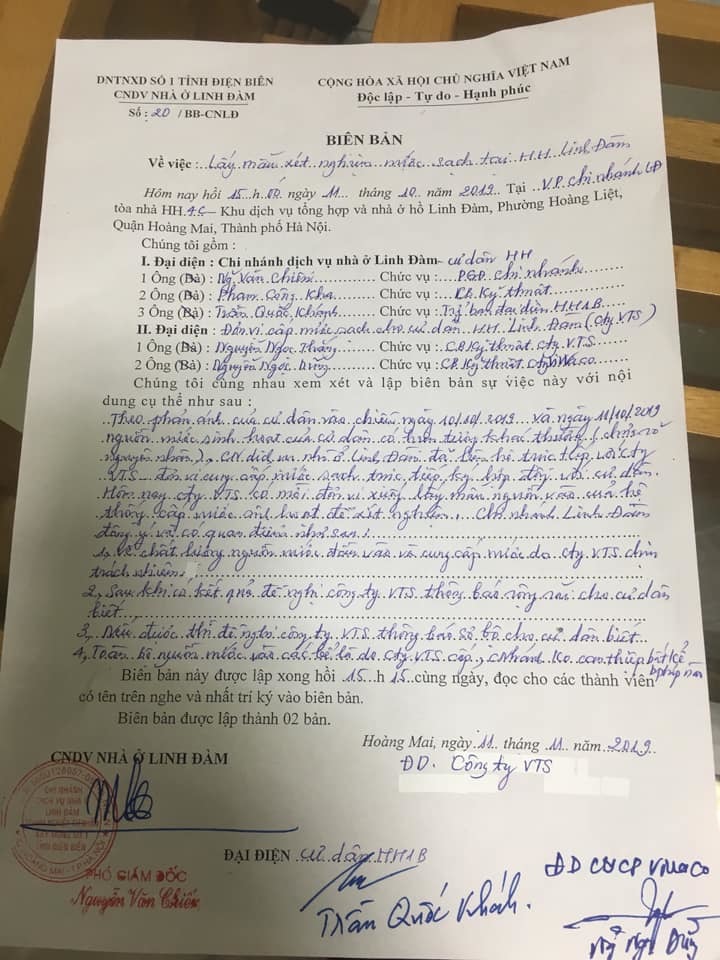 DNTNXD SỐ 1 TỈNH ĐIỆN BIÊN
CNDV NHÀ Ở LINH ĐÀM
Số : 20 / BB-CNLĐ
CỘNG HÒA XÃ HỘI CHỦ NGHĨA VIỆT NAM
Độc lập - Tự do - Hạnh phúc
BIÊN BẢN
Về việc : Lấy mẫu xét nghiệm nước sạch tại HH Linh Đàm
Hôm nay hồi 15 h 00 ngày 11 tháng 10 năm 2019 Tại VP chi nhánh LĐ
tòa nhà HH 4C – Khu dịch vụ tổng hợp và nhà ở hồ Linh Đàm, Phường Hoàng Liệt,
Quận Hoàng Mai, Thành phố Hà Nội.
Chúng tôi gồm :
I. Đại diện : Chi nhánh dịch vụ nhà ở Linh Đàm - cư dân HH
1 Ông (Bà) : Ng Văn Chiến Chức vụ : PGĐ chi nhánh
2 Ông (Bà) : Phạm Công Kha Chức vụ : CB Kỹ thuật
3 Ông (Bà) : Trần Quốc Khánh Chức vụ : Trg ban đại diện HH1B
II. Đại diện : Đơn vị cấp nước sạch cho cư dân HH Linh Đàm (Cty VTS)
1 Ông (Bà) : Nguyễn Ngọc Thắng Chức vụ : CB Kỹ thuật cty VTS
2 Ông (Bà) : Nguyễn Ngọc Dũng Chức vụ : CB Kỹ thuật cty Viwaco
Chúng tôi cùng nhau xem xét và lập biên bản sự việc này với nội
dung cụ thể như sau :
Theo phản ánh của cư dân vào chiều ngày 10/10/2019 và ngày 11/10/2019
nguồn nước sinh hoạt của cư dân có hiện tượng khác thường (chưa rõ
nguyên nhân), CN dịch vụ nhà ở Linh Đàm đã liên hệ trực tiếp với cty
VTS đơn vị cung cấp nước sạch trực tiếp ký hợp đồng với cư dân.
Hôm nay cty VTS có mời đơn vị xuống lấy mẫu nguồn vào của hệ
thống cấp nước sinh hoạt để xét nghiệm, Chi nhánh Linh Đàm
đồng ý và có quan điểm như sau :
1, Về chất lượng nguồn nước đầu vào và cung cấp nước do cty VTS chịu
trách nhiệm
2, Sau khi có kết quả đề nghị công ty VTS thông báo rộng rãi cho cư dân
biết
3, Nếu được thì đề nghị công ty VTS thông báo sơ bộ cho cư dân biết
4, Toàn bộ nguồn nước vào các bể là do cty VTS cấp, C Nhánh Ko can thiệp bất kể
Biên bản này được lập xong hồi 15 h 15 cùng ngày, đọc cho các thành viên
có tên trên nghe và nhất trí ký vào biên bản.
Biên bản được lập thành 02 bản.
Hoàng Mai, ngày 11 tháng 11 năm 2019
CNDV NHÀ Ở LINH ĐÀM
ĐD. Công ty VTS
CHI NHÁNH
DỊCH VỤ NHÀ Ở
LINH ĐÀM
PHÓ GIÁM ĐỐC
Nguyễn Văn Chiến
ĐẠI DIỆN cư dân HH1B
Trần Quốc Khánh.
ĐD CTCP Viwaco
Ng Ngọc Dũng